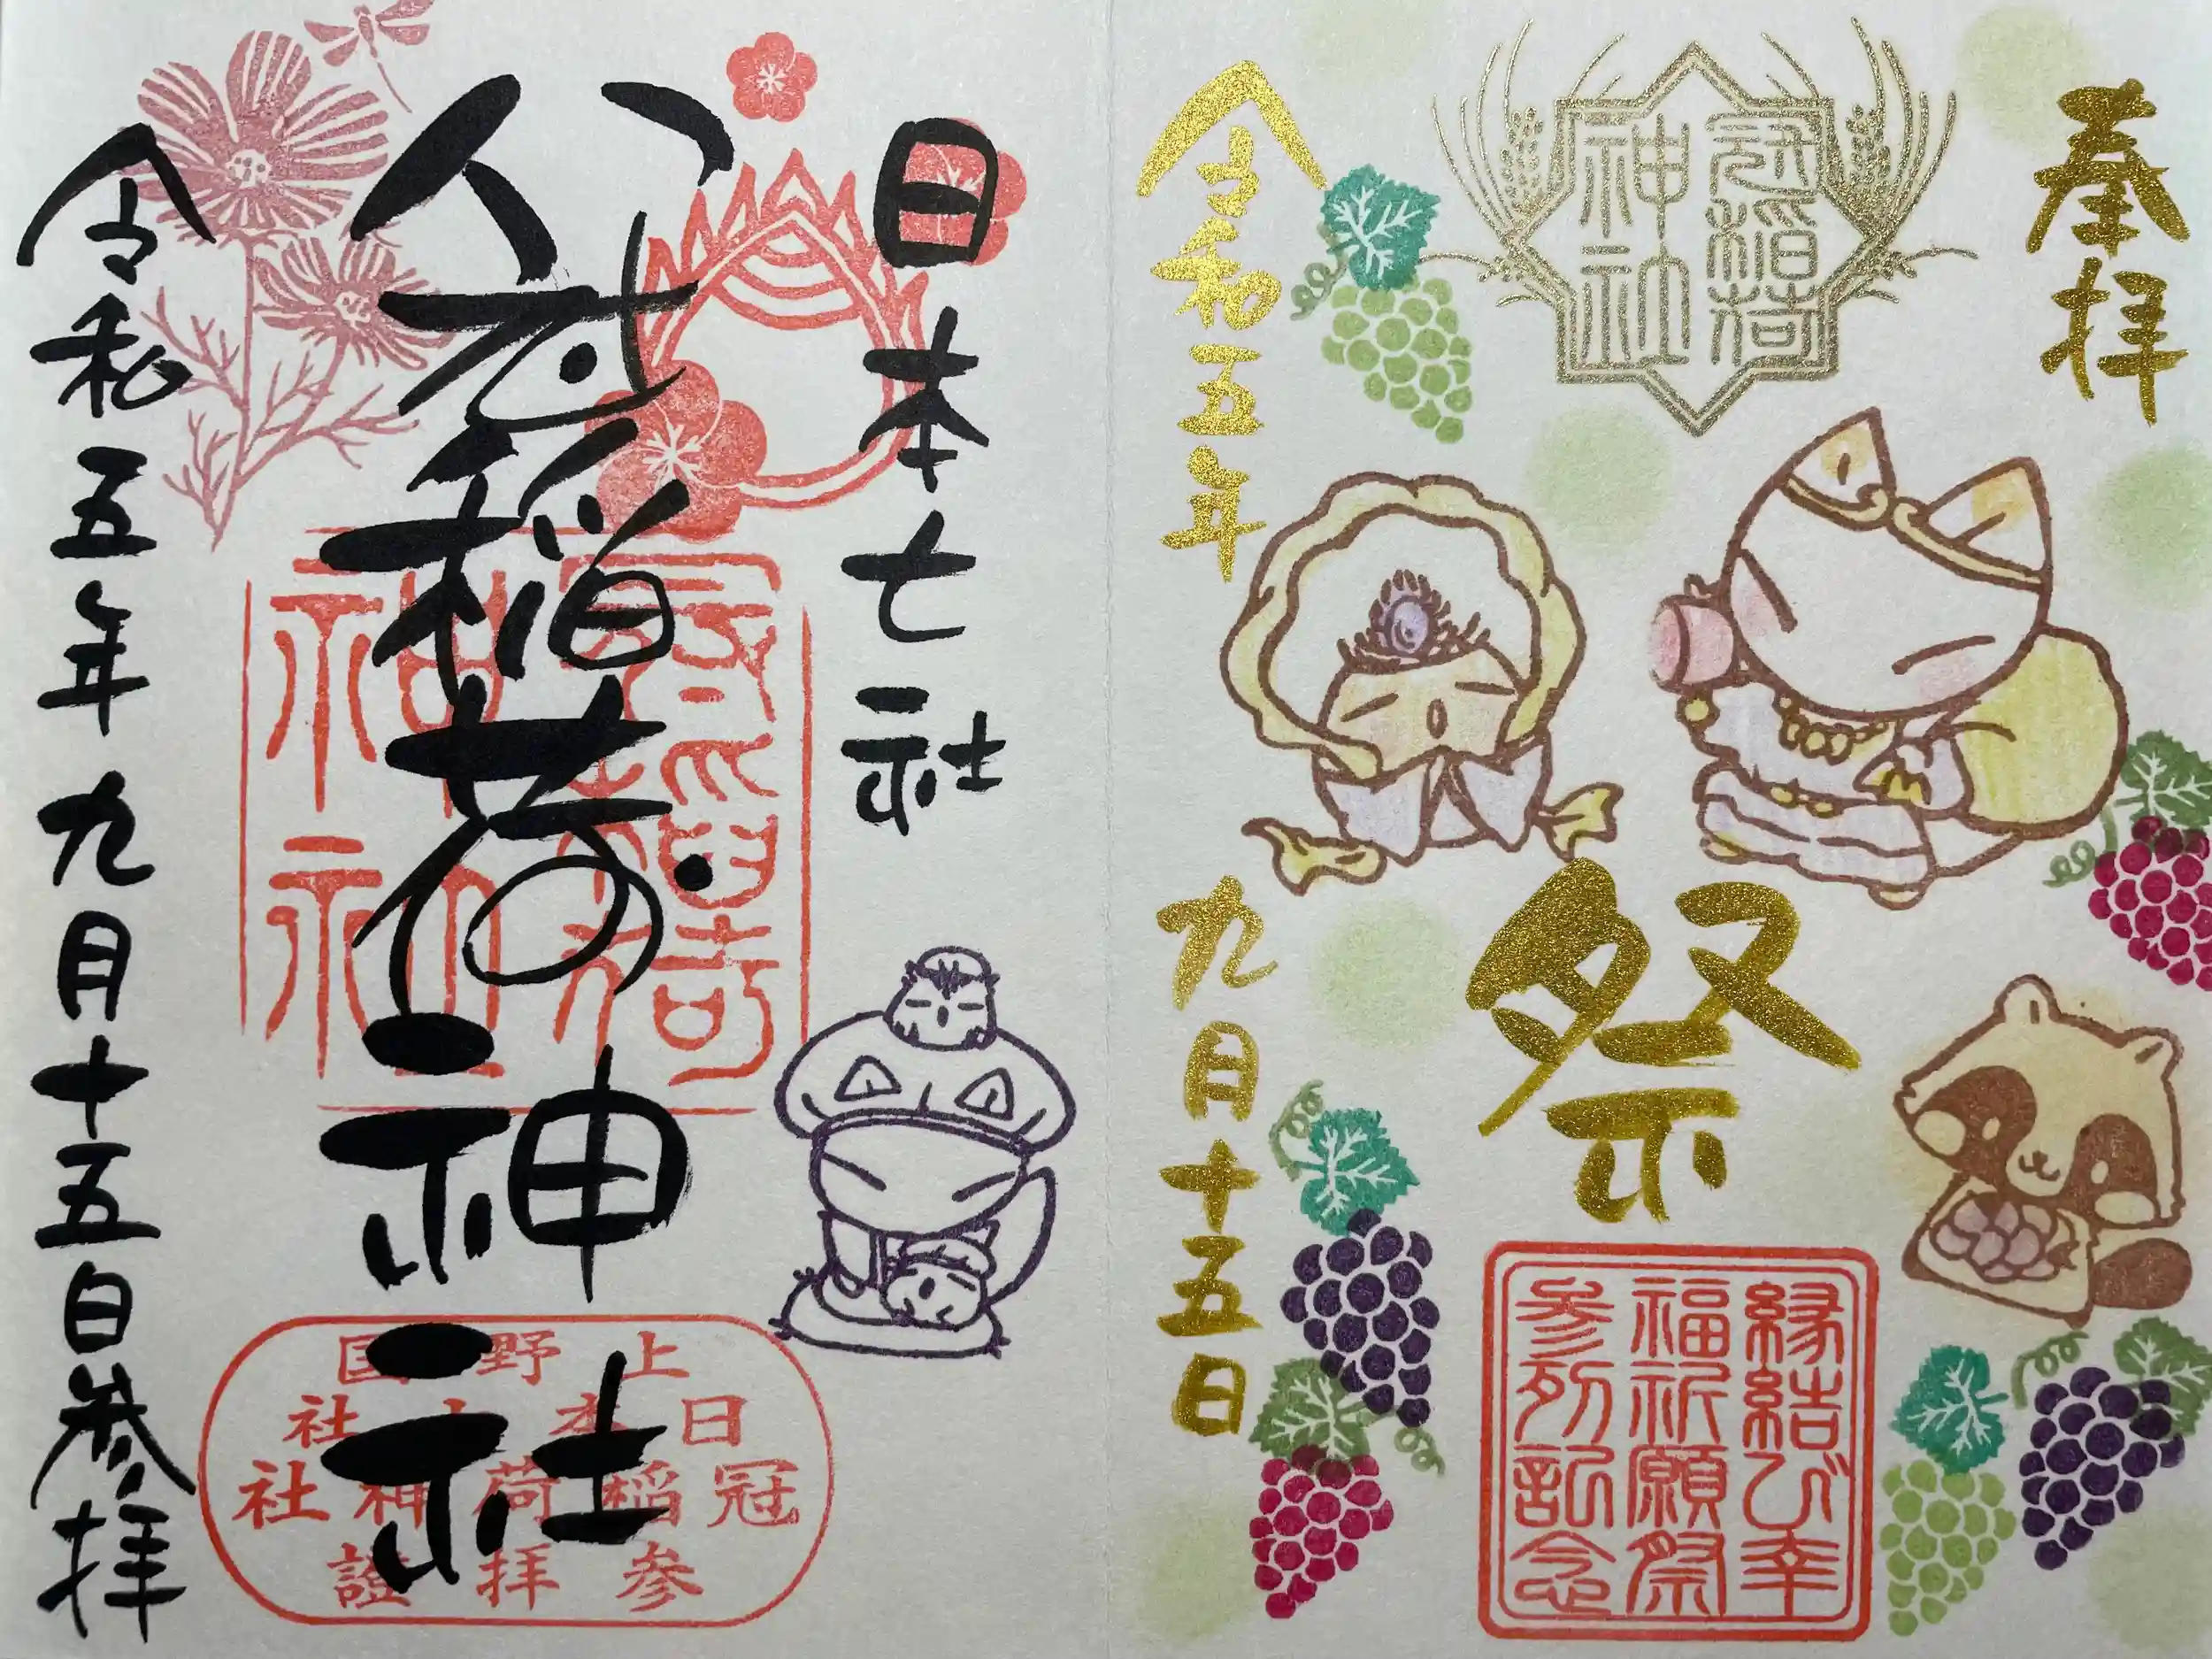 奉拝
冠稲荷
神社
祭
縁結び幸
福祈願祭
参列記念
令和五年
九月十五日
日本七社
冠稲荷神社
上野国
日本七社
冠稲荷神社
参拝證
令和五年九月十五日参拝